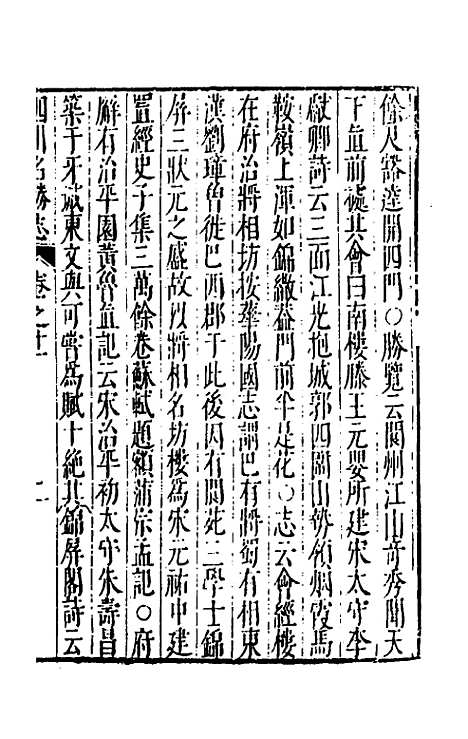 餘尺豁達開四門〇勝覽云閬州江山奇秀聞天
下直前處其會曰南樓滕王元嬰所建宋太守李
獻卿詩云三面江光抱城郭四圍山勢鎖烟霞馬
鞍嶺上渾如錦繖葢門前半是花〇志云會經樓
在府治將相坊按華陽國志謂巴有將蜀有相東
漢劉璋曾徙巴西郡于此後因有閬苑三學士錦
屏三狀元之盛故以將相名坊樓為宋元祐中建
置經史子集三萬餘卷蘇軾題額蒲宗孟記〇府
廨有治平園黃魯直記云宋治平初太守朱壽昌
築于牙城東文與可嘗為賦十絕其錦屏閣詩云
四川名勝志 卷之十